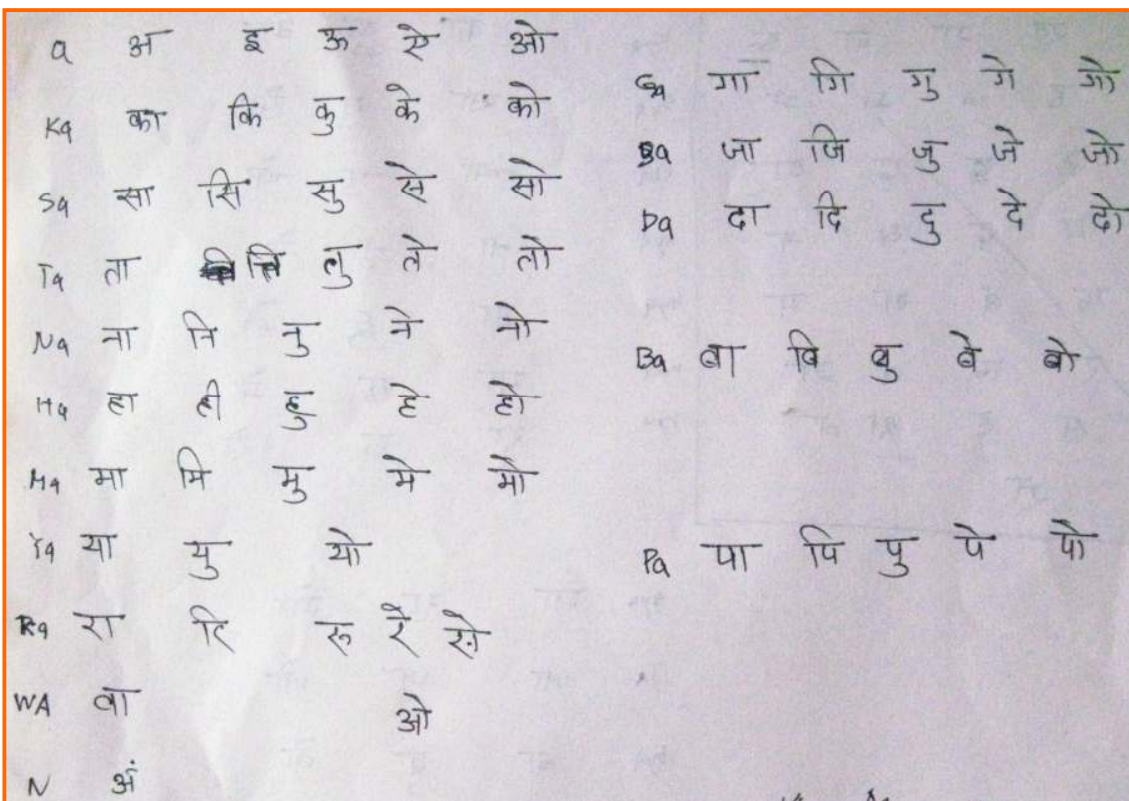 a अ इ ऊ ऐ ओ
Ka का कि कु के को
Sa सा सि सु से सो
Ta ता ति तु ते तो
Na ना नि नु ने नो
Ha हा ही हु हे हो
Ma मा मि मु मे मो
Ya या यु यो
Ra रा रि रू रे रो
WA वा ओ
N अं
Ga गा गि गु गे गो
जा जि जु जे जो
Da दा दि दु दे दो
Ba बा बि बु बे बो
Pa पा पि पु पे पो